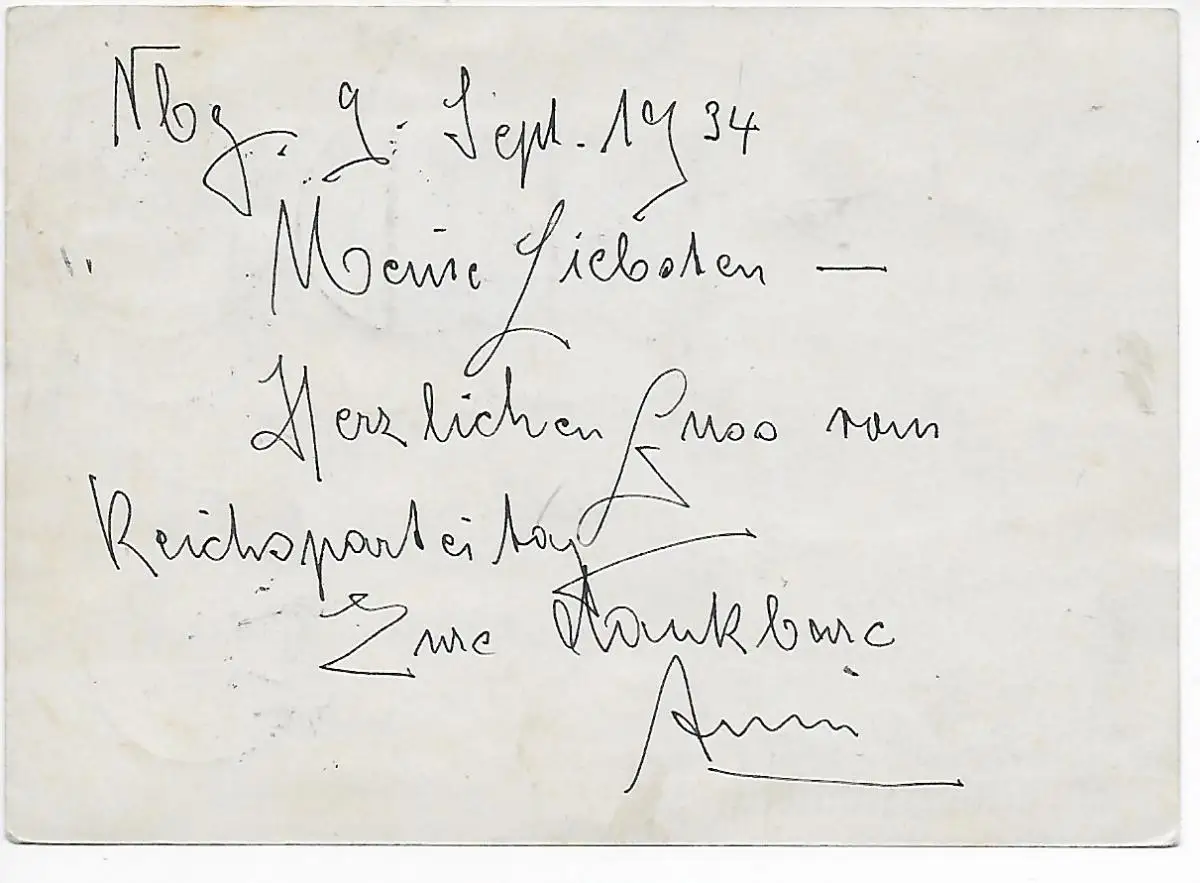 Nbg. 9. Sept. 1934
Meine Liebsten —
Herzlichen Gruss vom
Reichsparteitag
Eure dankbare
Anni